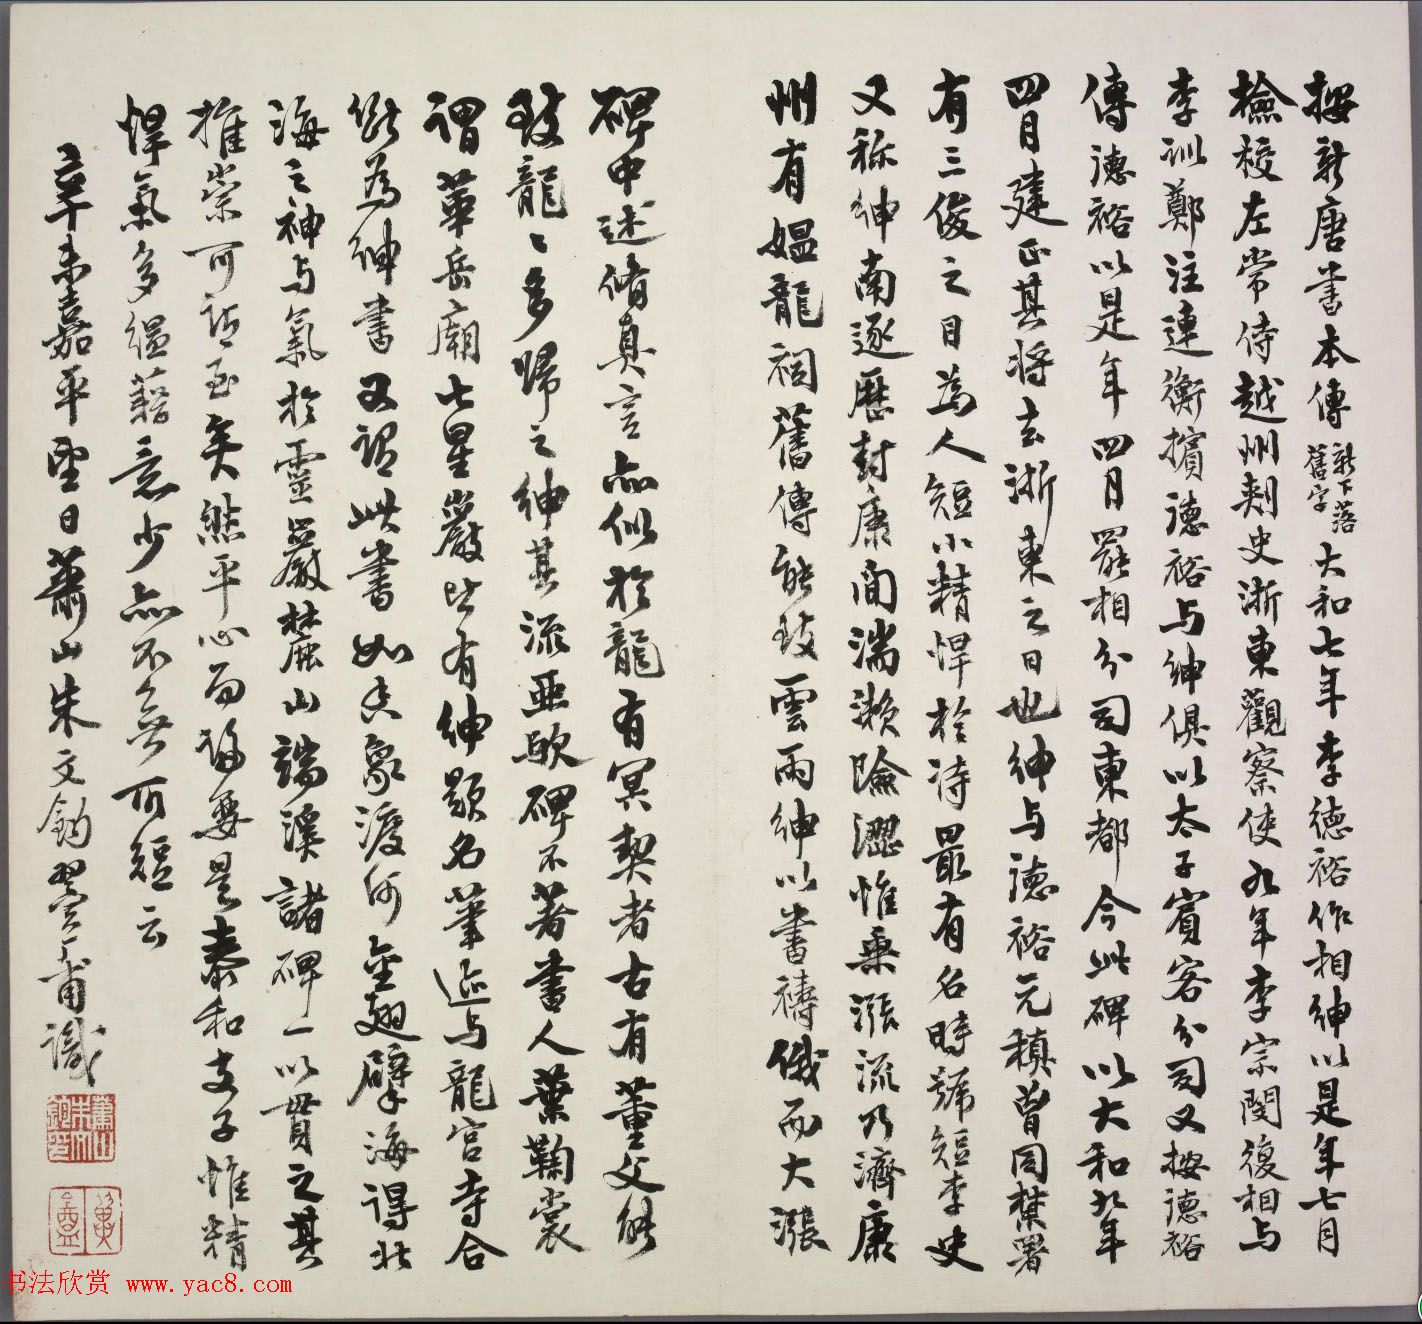 按新唐書本傳新下落舊字大和七年李德裕作相紳以是年七月
檢校左常侍越州刺史浙東觀察使九年李宗閔復相與
李訓鄭注連衡擯德裕与紳俱以太子賓客分司又按德裕
傳德裕以是年四月罷相分司東都今此碑以大和九年
四月建正其將去浙東之日也紳与德裕元稹曾同禁署
有三俊之目為人短小精悍於诗最有名時號短李史
又稱紳南逐歷封康間湍瀨險澀惟乗漲流乃濟康
州有媼龍祠舊傳能致雲雨紳以書禱俄而大漲
碑中述脩真言亦似於龍有冥契者古有董父能
致龍龍多歸之紳其流亞歟碑不著書人葉鞠裳
謂華岳廟七星巖皆有紳題名筆迹与龍宮寺合
斷為紳書又謂此書如香象渡河金翅擘海得北
海之神与氣於靈巖麓山端溪諸碑一以貫之其
推崇可謂至矣然平心而論要是泰和支子惟精
悍氣多縕藉意少亦不無可短云
辛未嘉平望日蕭山朱文鈞翼厂甫識
蕭山朱文鈞印
翼盦
书法欣赏 www.yac8.com